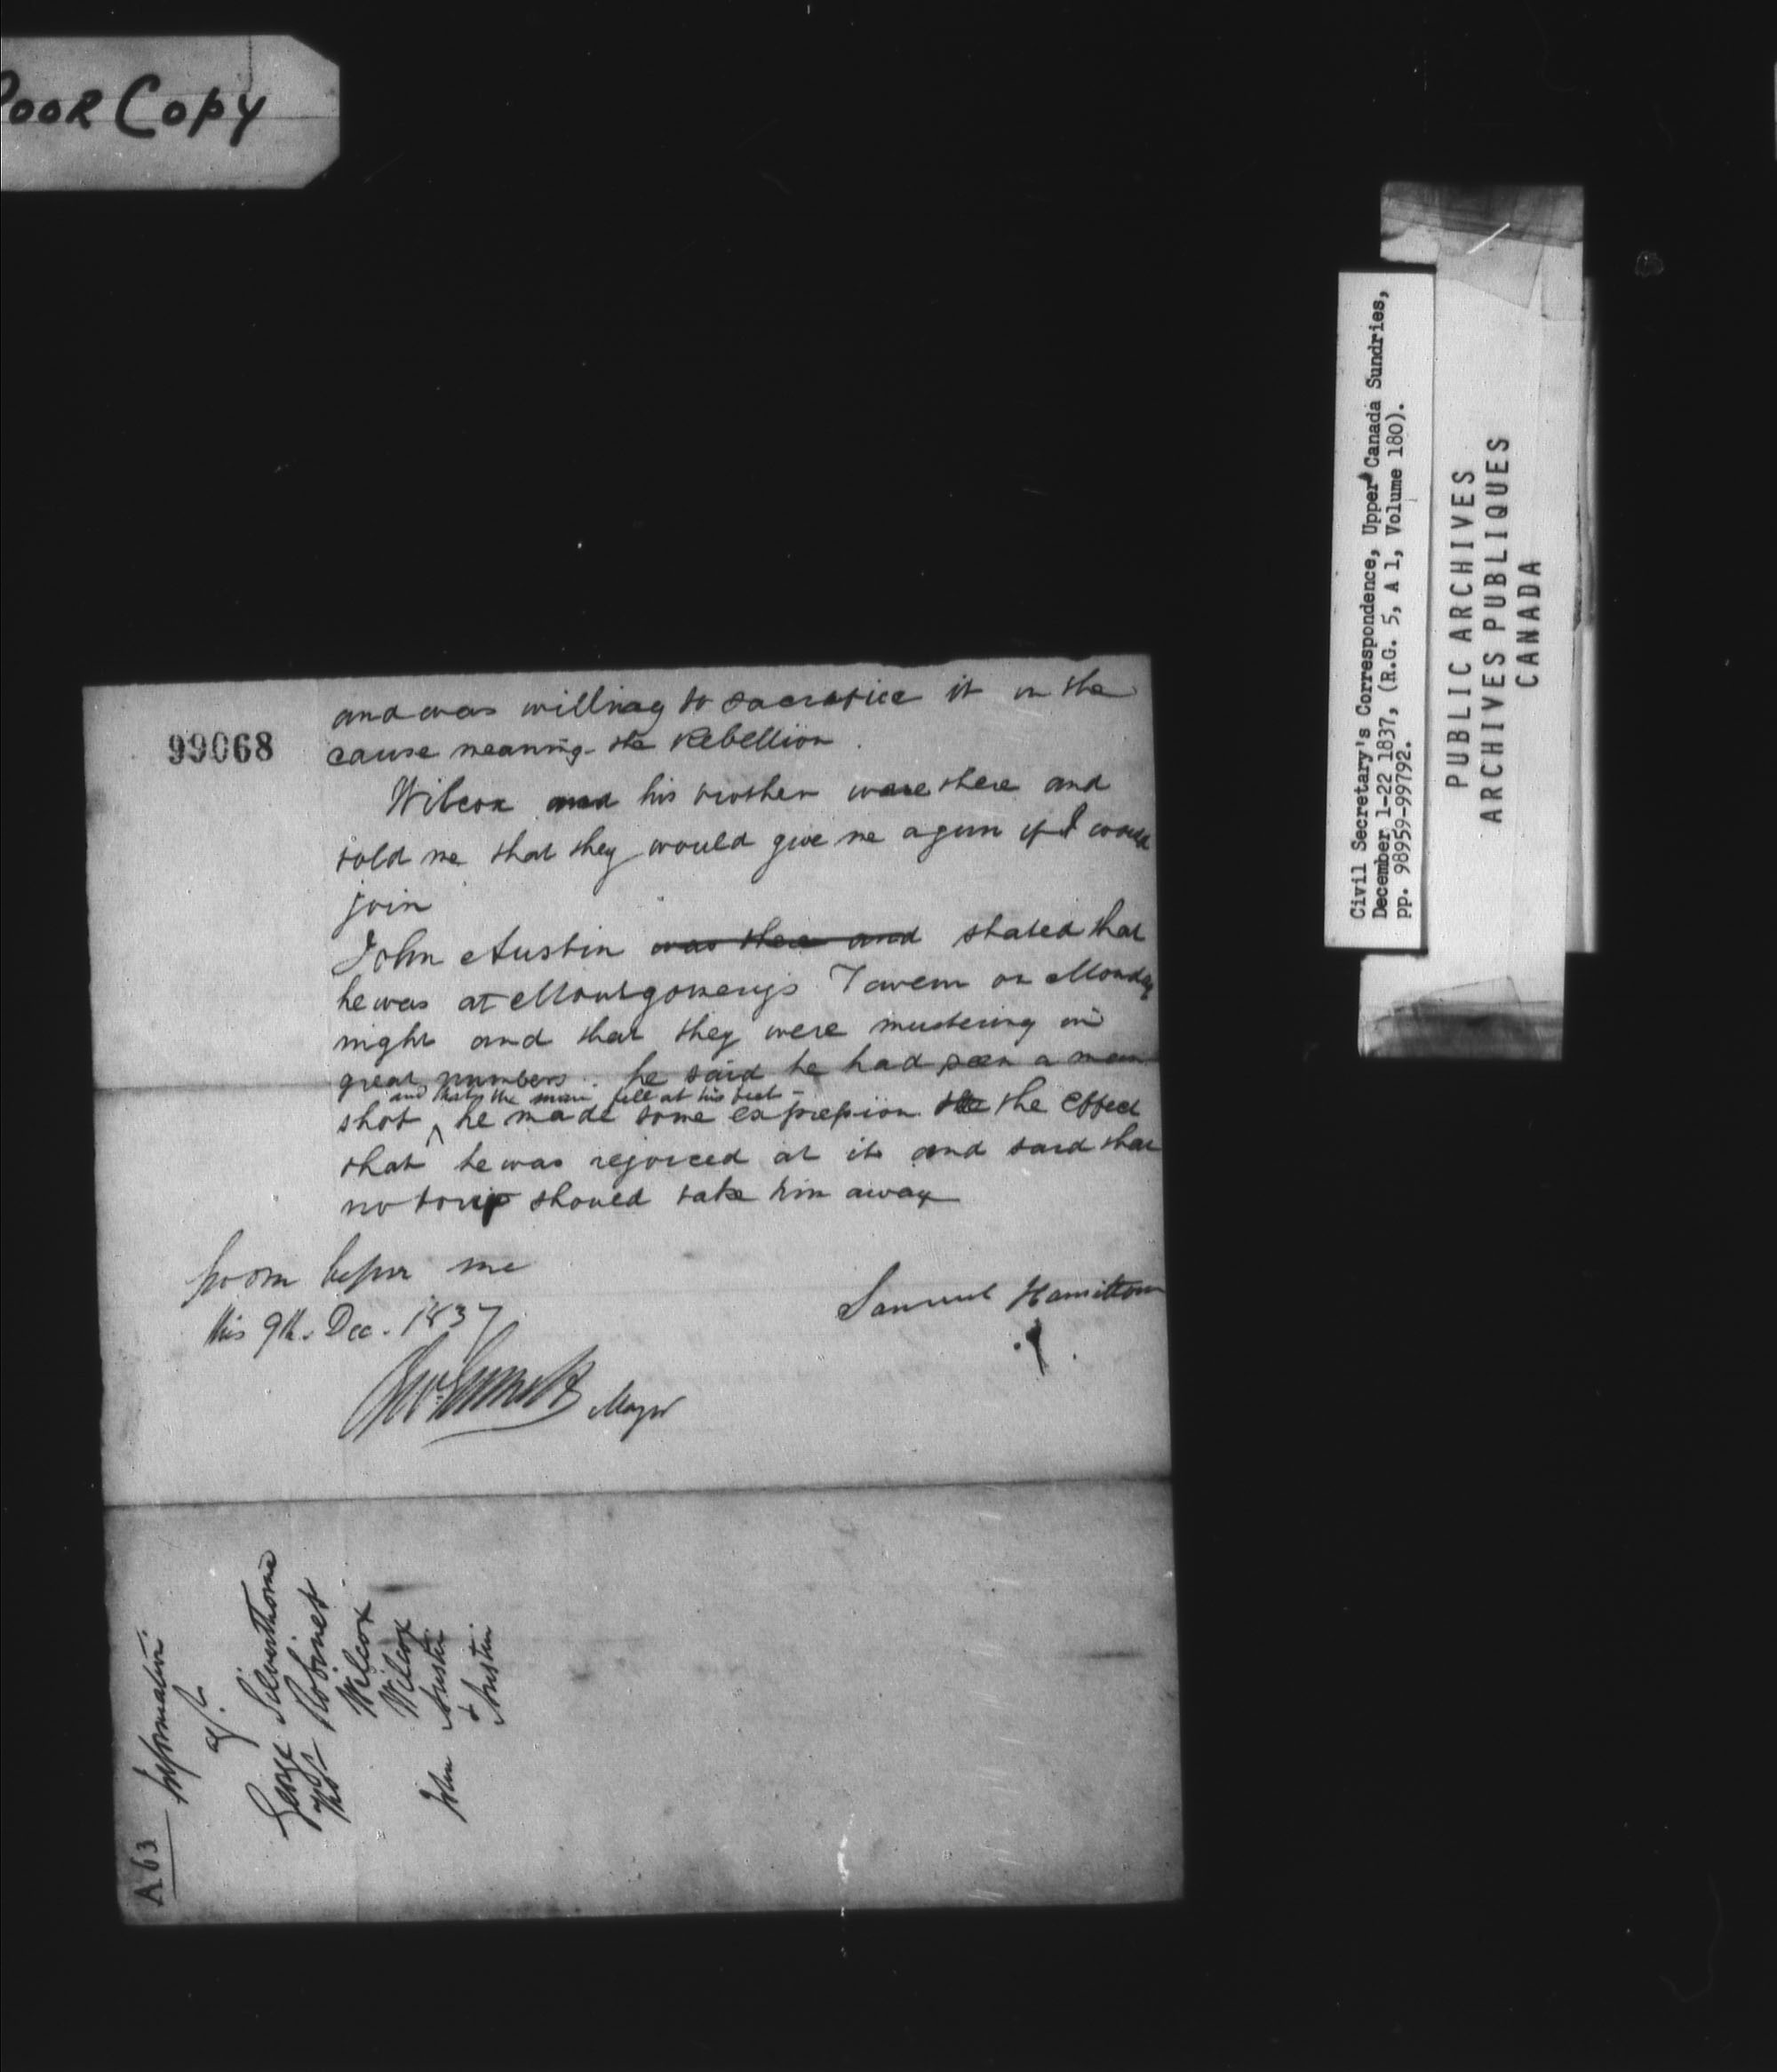 Poor Copy
99068
and was willing to sacrafice it in the
cause meaning the Rebellion.
Wilcox and his brother were there and
told me that they would give me a gun if I would
join
John Austin was there and stated that
he was at Montgomerys Tavern on Monday
night and that they were mustering in
great numbers. he said he had seen a man
and that the man fell at his feet -
shot he made some expression the the effect
that he was rejoiced at it and said that
no should take him away
Sworn before me
this 9th. Dec. 1837
Samuel Hamilton
Mayor
A.63
Information
George Silverthorn
Robinet
Wilcox
Wilcox
John Austin
& Austin
Civil Secretary's Correspondence, Upper Canada Sundries,
December 1-22 1837, (R.G. 5, A 1, Volume 180).
pp. 98959-99792.
PUBLIC ARCHIVES
ARCHIVES PUBLIQUES
CANADA